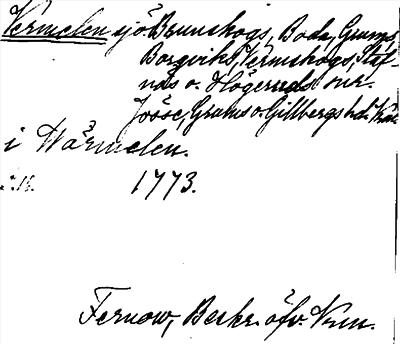 Vermelen sjö Brunskogs, Boda, Grums,
Borgviks, Värmskogs, Staf-
näs o. Högeruds snr.
Jösse, Grums o. Gillbergs hd. Vrm.
i Wärmelen.
1773.
Fernow, Beskr. öfv. Vrm.